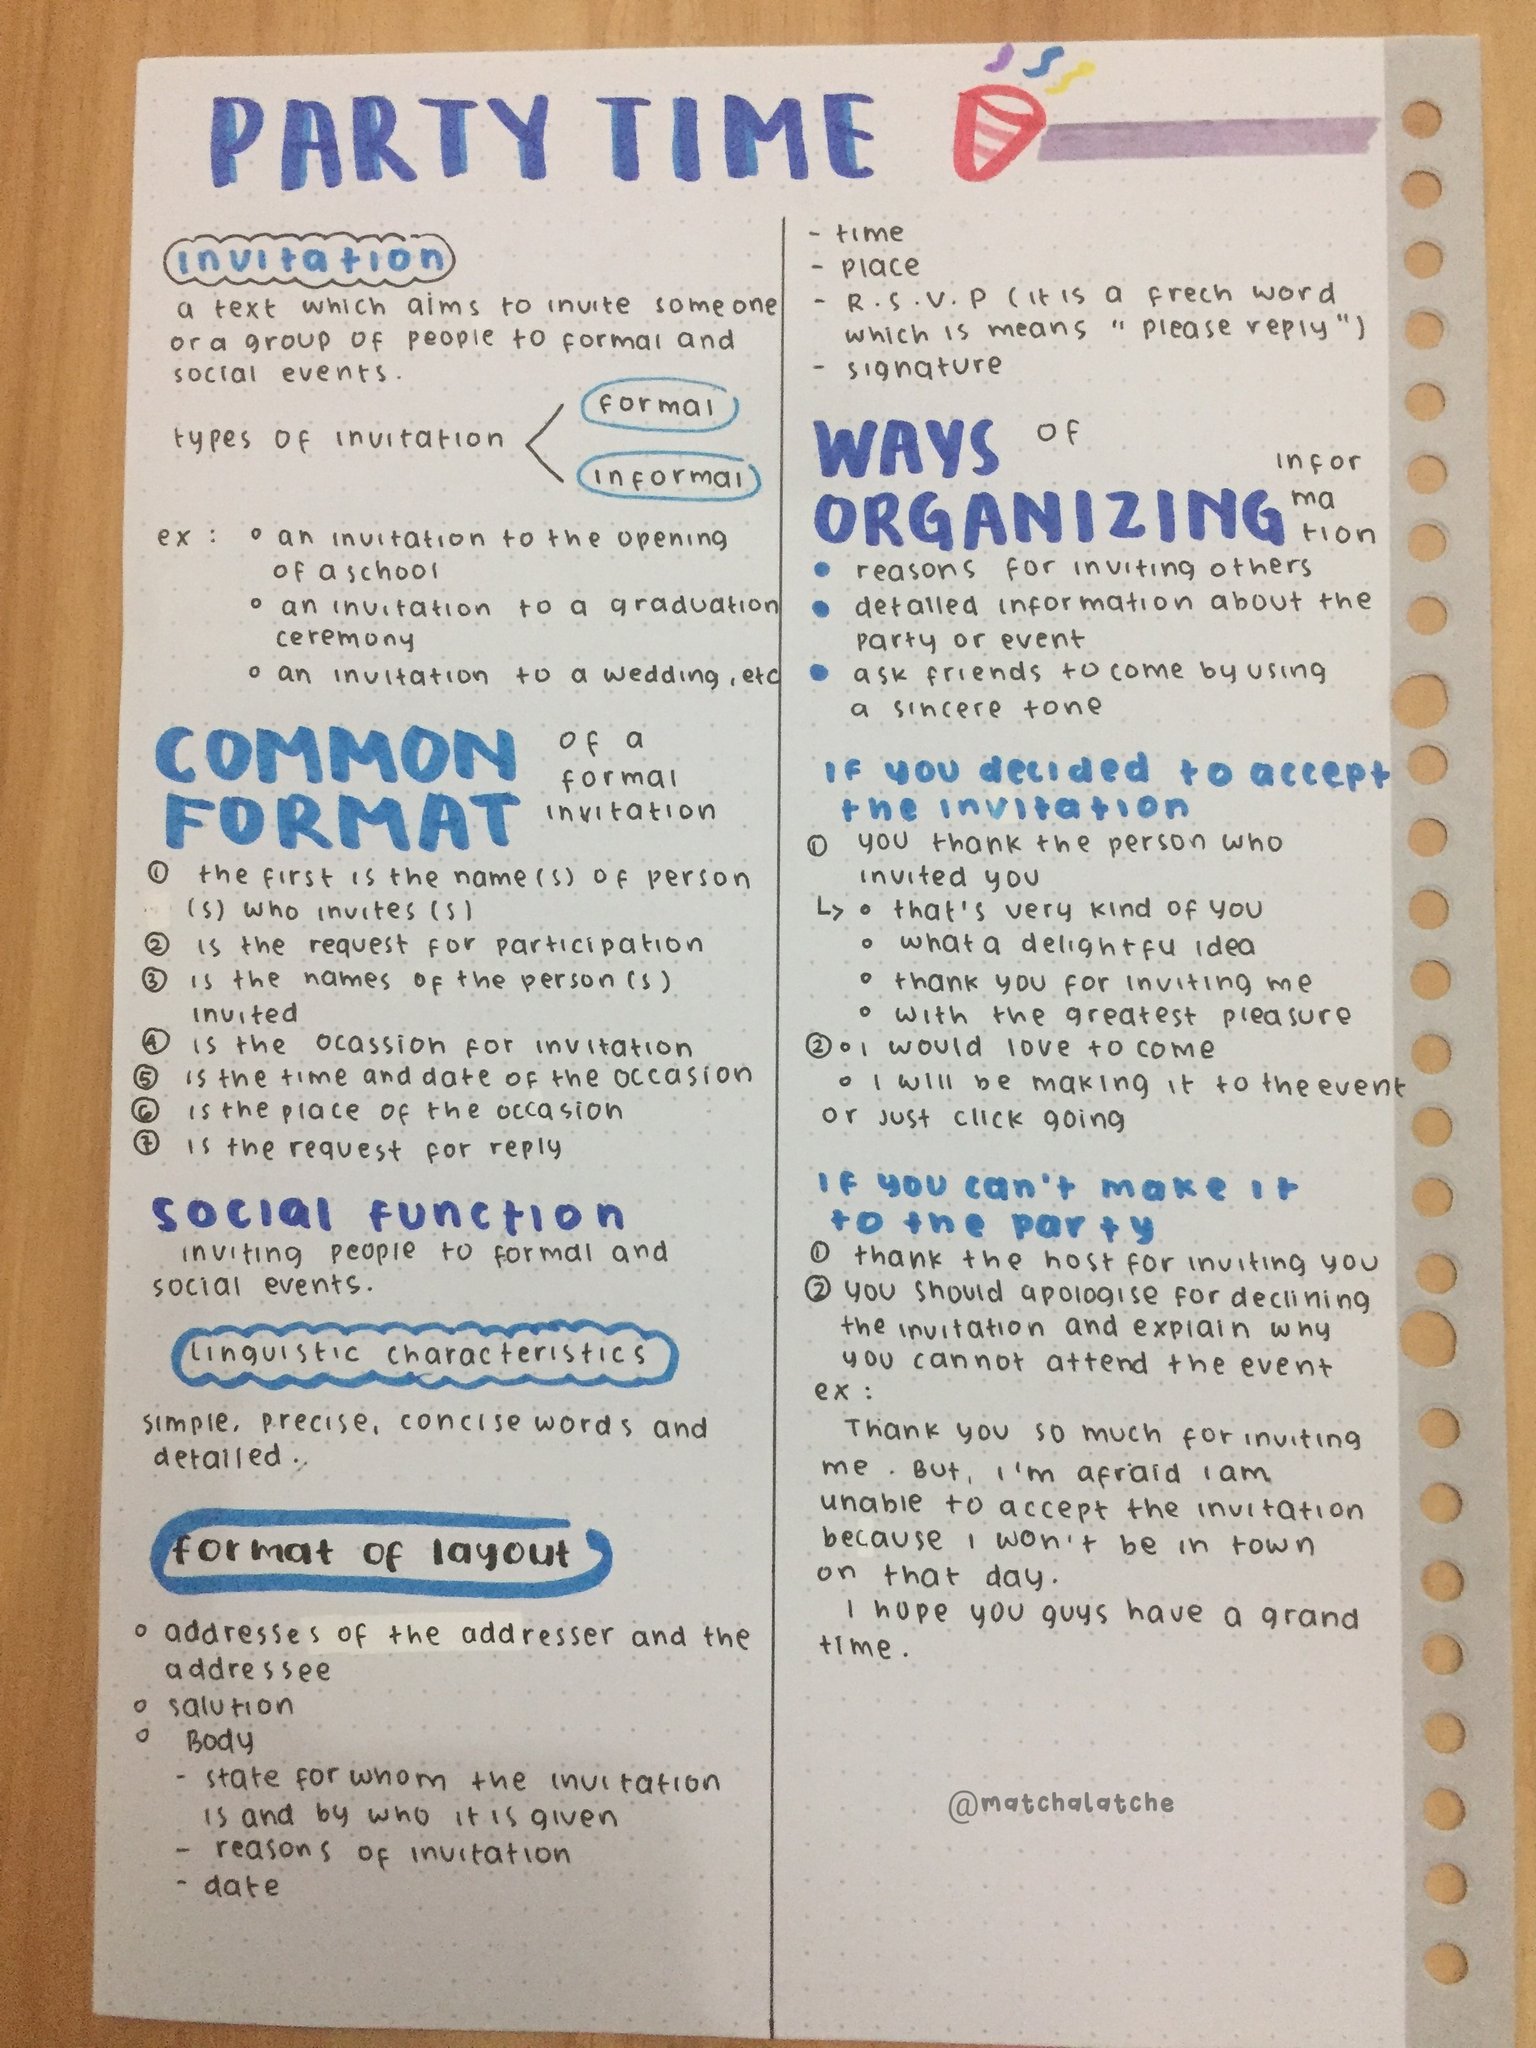 PARTY TIME
invitation
a text which aims to invite someone
or a group of people to formal and
social events.
types of invitation
formal
informal
ex : ° an invitation to the opening
of a school
° an invitation to a graduation
ceremony
° an invitation to a wedding, etc
COMMON of a
formal
FORMAT invitation
① the first is the name(s) of person
(s) who invites(s)
② is the request for participation
③ is the names of the person(s)
invited
④ is the ocassion for invitation
⑤ is the time and date of the occasion
⑥ is the place of the occasion
⑦ is the request for reply
social function
inviting people to formal and
social events.
linguistic characteristics
simple, precise, concise words and
detailed..
format of layout
° addresses of the addresser and the
addressee
° salution
° Body
- state for whom the invitation
is and by who it is given
- reasons of invitation
- date
- time
- place
- R.S.V.P (it is a frech word
which is means " please reply")
- signature
WAYS of
ORGANIZING infor
ma
tion
• reasons for inviting others
• detailed information about the
party or event
• ask friends to come by using
a sincere tone
if you decided to accept
the invitation
① you thank the person who
invited you
↳ ° that's very kind of you
° what a delightfu idea
° thank you for inviting me
° with the greatest pleasure
② ° i would love to come
° i will be making it to the event
or just click going
if you can't make it
to the party
① thank the host for inviting you
② you should apologise for declining
the invitation and explain why
you cannot attend the event
ex :
Thank you so much for inviting
me. But, i'm afraid i am
unable to accept the invitation
because i won't be in town
on that day.
I hope you guys have a grand
time.
@matchalatche